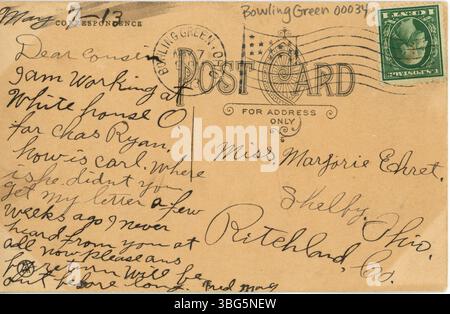 May 7-13
CORRESPONDENCE
Dear Cousin
I am Working at
White house O
for Chas Ryan,
how is Carl. Where
is he. didn't you
get my letter a few
weeks ago I never
heard from you at
all now please ans
by return will be
out before long. Fred
Bowling Green 00034
BOWLING GREEN
POST CARD
FOR ADDRESS
ONLY
Miss Marjorie Ehret.
Shelby, Ohio.
Ritchland, Co.
alamy
Image ID: 3BG5NEW
www.alamy.com